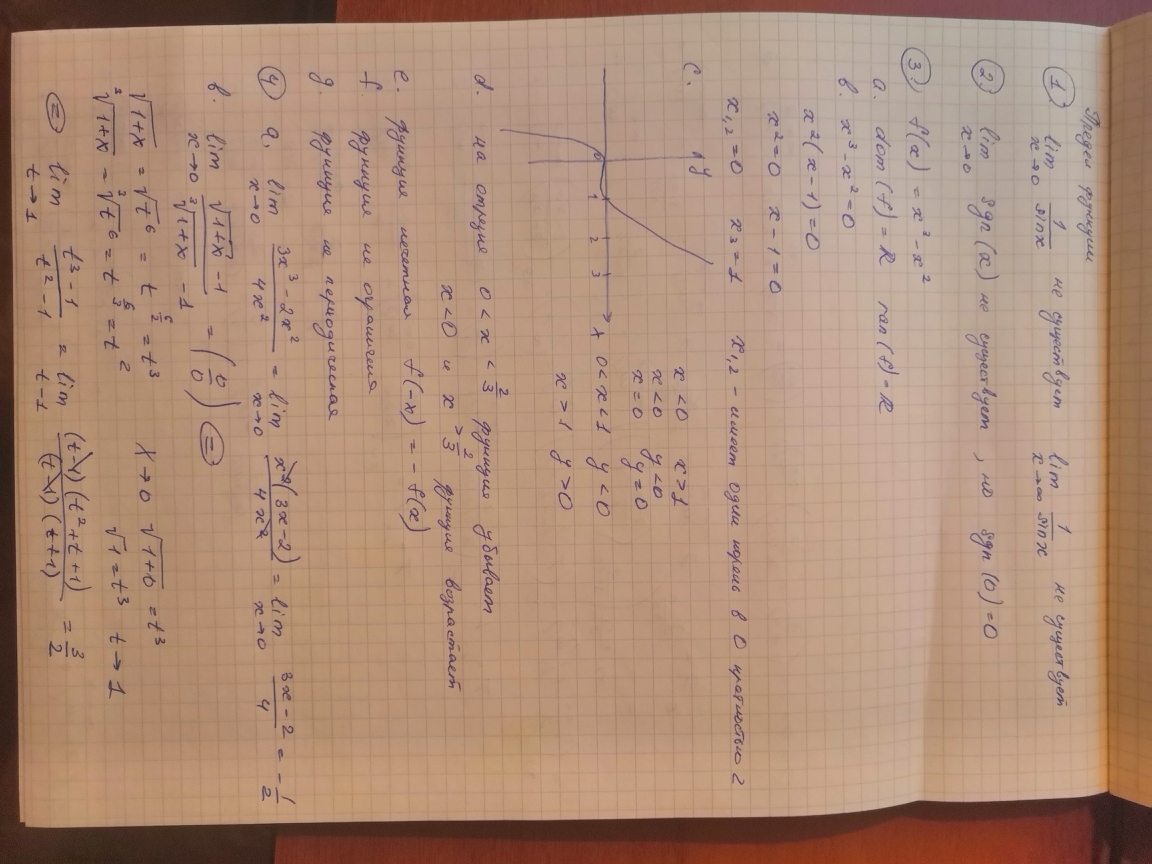 Предел функции
1. lim x→0 1/sinx не существует lim x→∞ 1/sinx не существует
2. lim x→0 sgn(x) не существует, но sgn(0)=0
3. f(x) = x³-x²
a. dom(f) = R ran(f) = R
в. x³-x²=0
x²(x-1)=0
x²=0 x-1=0
x₁,₂=0 x₃=1 x₁,₂ - имеет один корень в 0 кратностью 2
c. y
x<0 x>1
x<0 y<0
x=0 y=0
0 1 2 3 x 0<x<1 y<0
x>1 y>0
d. на отрезке 0<x<2/3 функция убывает
x<0 и x>2/3 функция возрастает
e. функция нечетная f(-x) = -f(x)
f. функция не ограничена
g. функция не периодическая
4 a. lim x→0 (3x³-2x²)/(4x²) = lim x→0 x²(3x-2)/(4x²) = lim x→0 (3x-2)/4 = -1/2
в. lim x→0 (√(1+x) -1)/(³√(1+x) -1) = (0/0) =
√(1+x) = √t⁶ = t^(6/2) = t³ x→0 √(1+0) = t³
³√(1+x) = ³√t⁶ = t^(6/3) = t² √1 = t³ t→1
= lim t→1 (t³-1)/(t²-1) = lim t-1 (t-1)(t²+t+1)/((t-1)(t+1)) = 3/2